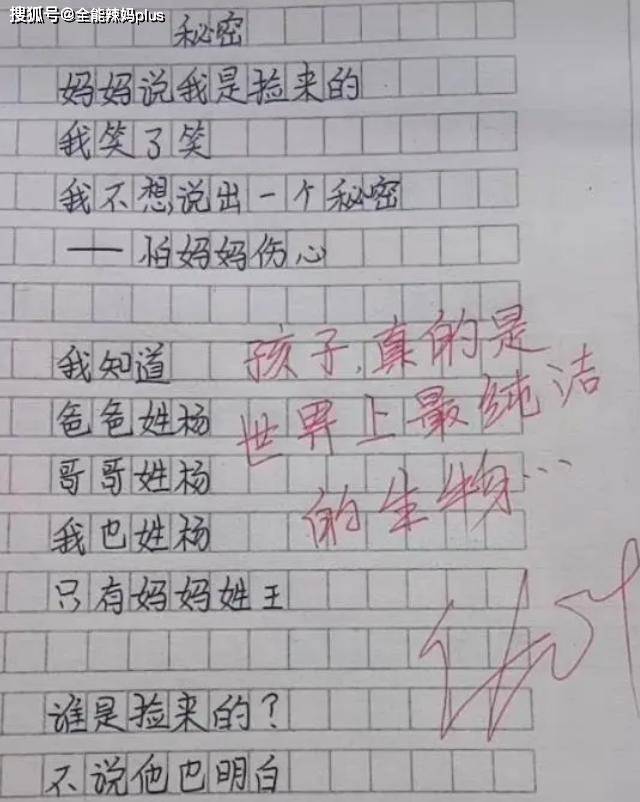 搜狐号@全能辣妈plus
秘密
妈妈说我是捡来的
我笑了笑
我不想说出一个秘密
——怕妈妈伤心
我知道
爸爸姓杨
哥哥姓杨
我也姓杨
只有妈妈姓王
谁是捡来的?
不说他也明白
孩子,真的是
世界上最纯洁
的生物…